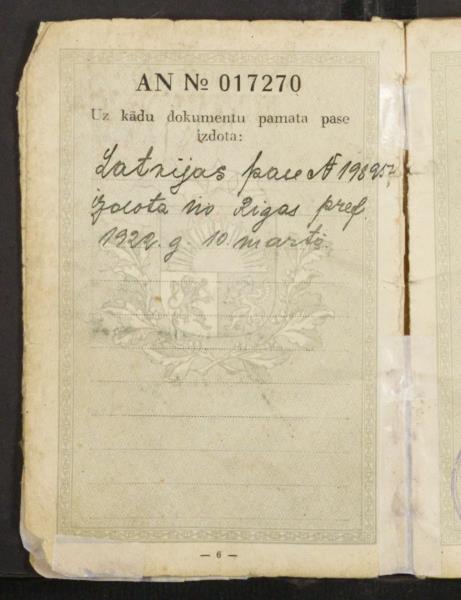 AN № 017270
Uz kādu dokumentu pamata pase
izdota:
Latvijas pase № 19895
izdota no Rīgas pref.
1922. g. 10. martā.
— 6 —